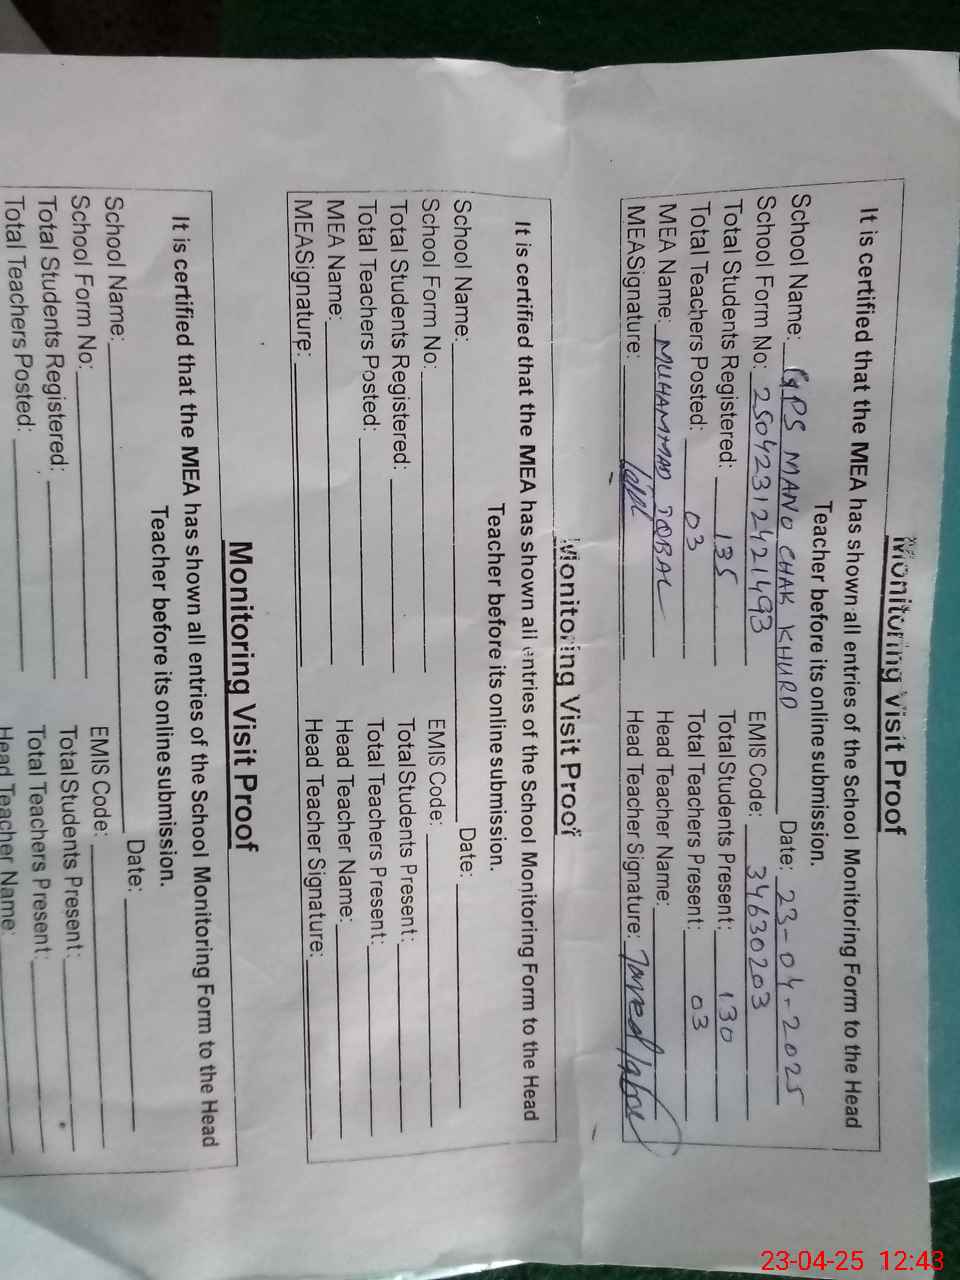 Monitoring Visit Proof
It is certified that the MEA has shown all entries of the School Monitoring Form to the Head
Teacher before its online submission.
School Name: GPS MANO CHAK KHURD Date: 23-04-2025
School Form No: 25042312421493 EMIS Code: 34630203
Total Students Registered: 135 Total Students Present: 130
Total Teachers Posted: 03 Total Teachers Present: 03
MEA Name: MUHAMMAD IQBAL Head Teacher Name:
MEASignature: Head Teacher Signature:
Monitoring Visit Proof
It is certified that the MEA has shown all entries of the School Monitoring Form to the Head
Teacher before its online submission.
School Name: Date:
School Form No: EMIS Code:
Total Students Registered: Total Students Present:
Total Teachers Posted: Total Teachers Present:
MEA Name: Head Teacher Name:
MEASignature: Head Teacher Signature:
Monitoring Visit Proof
It is certified that the MEA has shown all entries of the School Monitoring Form to the Head
Teacher before its online submission.
School Name: Date:
School Form No: EMIS Code:
Total Students Registered: Total Students Present:
Total Teachers Posted: Total Teachers Present:
Head Teacher Name:
23-04-25 12:43